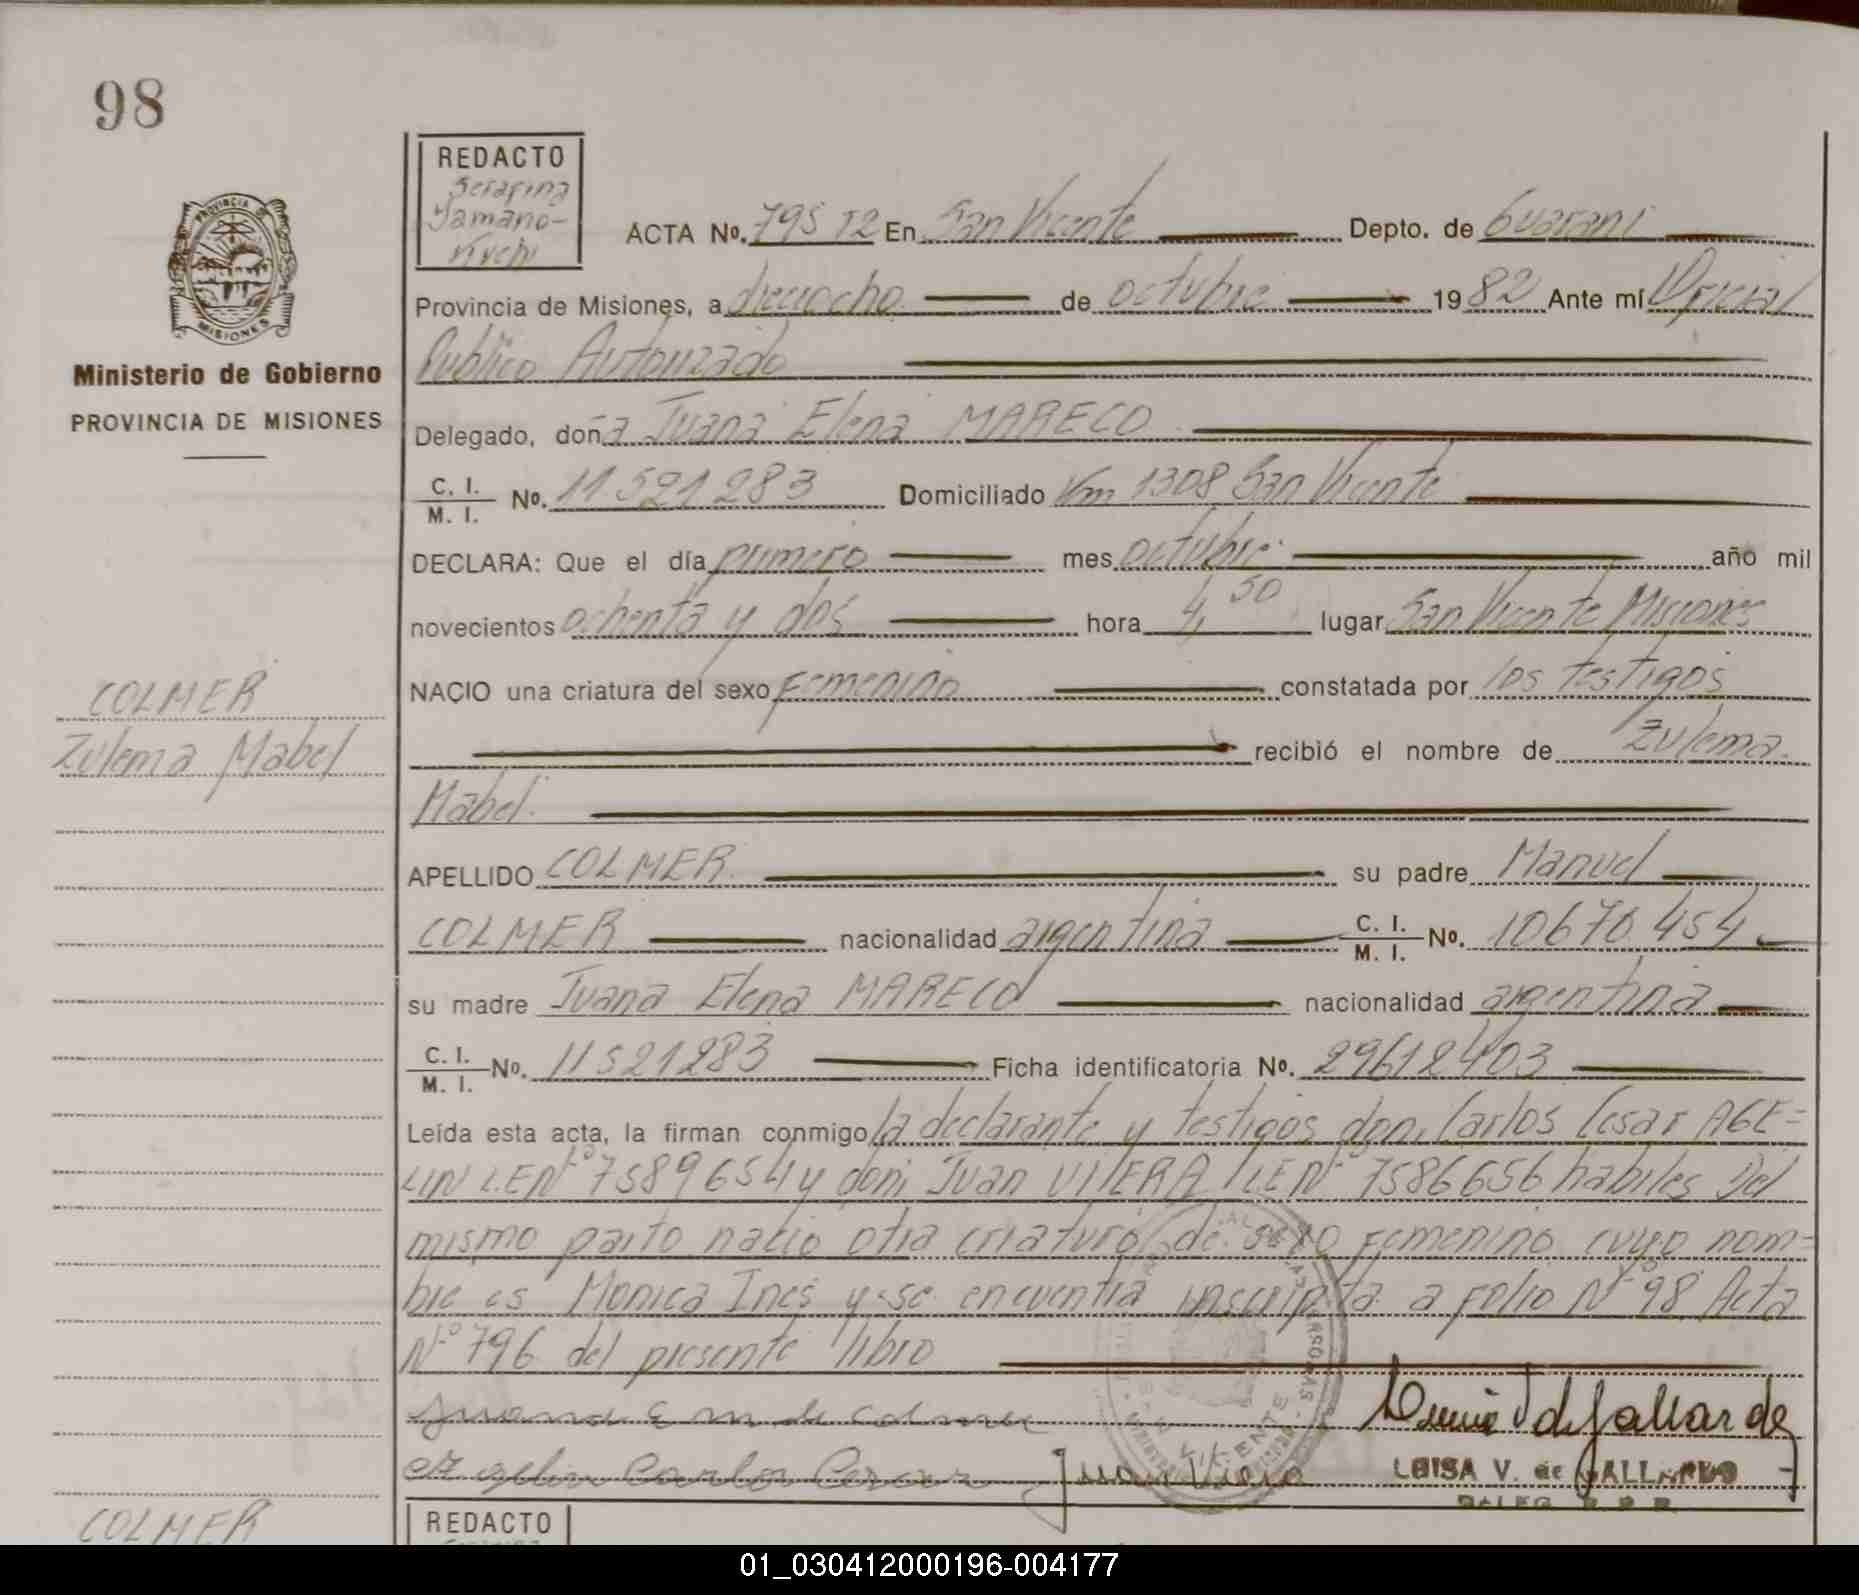 98
REDACTO
Serafina
Yamano-
ACTA No. 795 T2 En San Vicente Depto. de Guaraní
PROVINCIA DE
MISIONES
Provincia de Misiones, a dieciocho de octubre 1982 Ante mí Oficial
Público Autorizado
Ministerio de Gobierno
PROVINCIA DE MISIONES
Delegado, doña Juana Elena MARECO
C. I.
M. I. No. 11.521.283 Domiciliado Km 1308 San Vicente
DECLARA: Que el día primero mes octubre año mil
novecientos ochenta y dos hora 4,50 lugar San Vicente Misiones
COLMER
Zulema Mabel
NACIO una criatura del sexo Femenino constatada por los testigos
recibió el nombre de Zulema
Mabel.
APELLIDO COLMER su padre Manuel
COLMER nacionalidad argentina C. I.
M. I. No. 10670.454
su madre Juana Elena MARECO nacionalidad argentina
C. I.
M. I. No. 11521283 Ficha identificatoria No. 29612403
Leída esta acta, la firman conmigo la declarante y testigos don, Carlos Cesar AGE=
LIN L.E Nº 7589654 y don, Juan VIERA L.E Nº 7586656 habiles Del
mismo parto nacio otra criatura de sexo Femenino cuyo nom=
bre es Monica Ines y se encuentra inscripta a folio Nº 98 Acta
Nº 796 del presente libro
Juana E M de Colmer
Carlos Cesar Juan Viera
LUISA V. de GALLARDO
COLMER
REDACTO
01_030412000196-004177